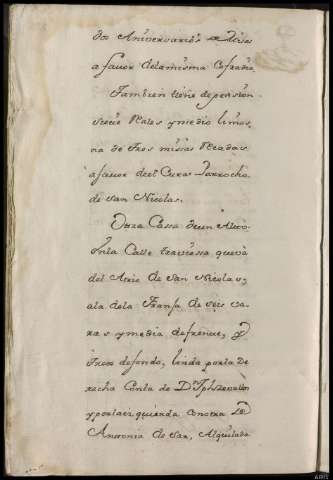 dos Aniversarios
a favor dela misma Cofradia
Tambien tiene depension
siete Rales y medio limos
na de tres missas Rezadas
a favor del Cura Parrocho
de San Nicolas.
Otra Cassa de un Alto
en la Calle traviessa que va
del Atrio de San Nicolas,
ala dela Franja de seis va
ras y media de frente, y
de fondo, linda por la De
recha Con la de Dn
y por la izquierda con otra de
Antonia de San, Alquilada